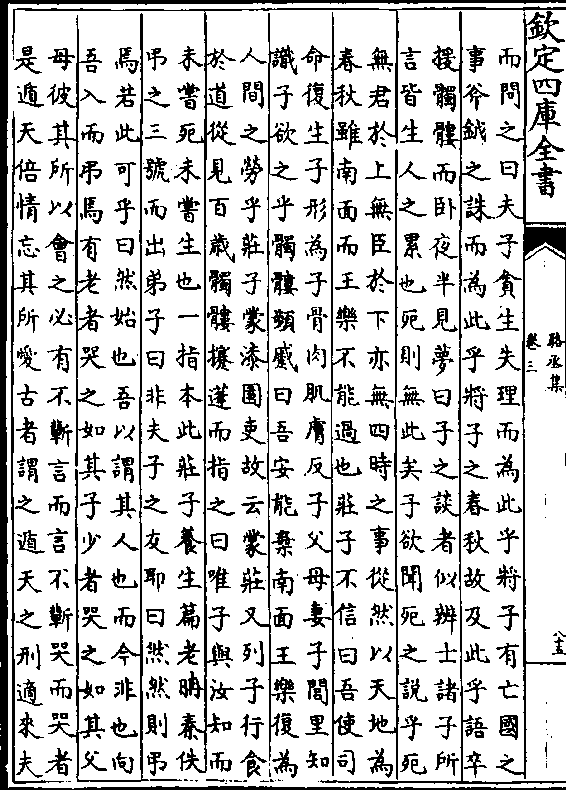 欽定四庫全書
駱丞集
卷三
八十五
而問之曰夫子貪生失理而為此乎將子有亡國之
事斧鉞之誅而為此乎將子之春秋故及此乎語卒
援髑髏而卧夜半見夢曰子之談者似辨士諸子所
言皆生人之累也死則無此矣子欲聞死之說乎死
無君於上無臣於下亦無四時之事從然以天地為
春秋雖南面而王樂不能過也莊子不信曰吾使司
命復生子形為子骨肉肌膚反子父母妻子閭里知
識子欲之乎髑髏顰蹙曰吾安能棄南面王樂復為
人間之勞乎莊子蒙漆園吏故云蒙莊又列子行食
於道從見百歲髑髏攓蓬而指之曰唯子與汝知而
未嘗死未嘗生也一指本此莊子養生篇老聃秦佚
弔之三號而出弟子曰非夫子之友耶曰然然則弔
焉若此可乎曰然始也吾以謂其人也而今非也向
吾入而弔焉有老者哭之如其子少者哭之如其父
母彼其所以會之必有不蘄言而言不蘄哭而哭者
是遁天倍情忘其所受古者謂之遁天之刑適來夫